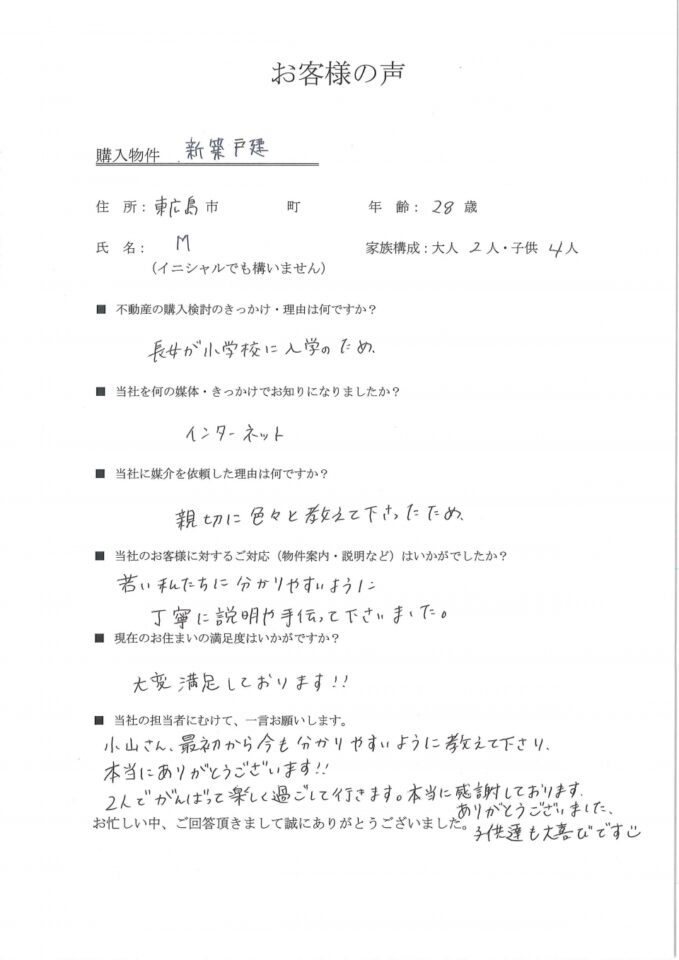 お客様の声
購入物件 新築戸建
住 所：東広島市 町 年 齢： 28 歳
氏 名： M 家族構成：大人 2人・子供 4人
（イニシャルでも構いません）
■ 不動産の購入検討のきっかけ・理由は何ですか？
長女が小学校に入学のため、
■ 当社を何の媒体・きっかけでお知りになりましたか？
インターネット
■ 当社に媒介を依頼した理由は何ですか？
親切に色々と教えて下さったため、
■ 当社のお客様に対するご対応（物件案内・説明など）はいかがでしたか？
若い私たちに分かりやすいように
丁寧に説明や手伝って下さいました。
■ 現在のお住まいの満足度はいかがですか？
大変満足しております!!
■ 当社の担当者にむけて、一言お願いします。
小山さん、最初から今も分かりやすいように教えて下さり、
本当にありがとうございます!!
2人でがんばって楽しく過ごして行きます。本当に感謝しております.
ありがとうございました、
お忙しい中、ご回答頂きまして誠にありがとうございました。
子供達も大喜びです